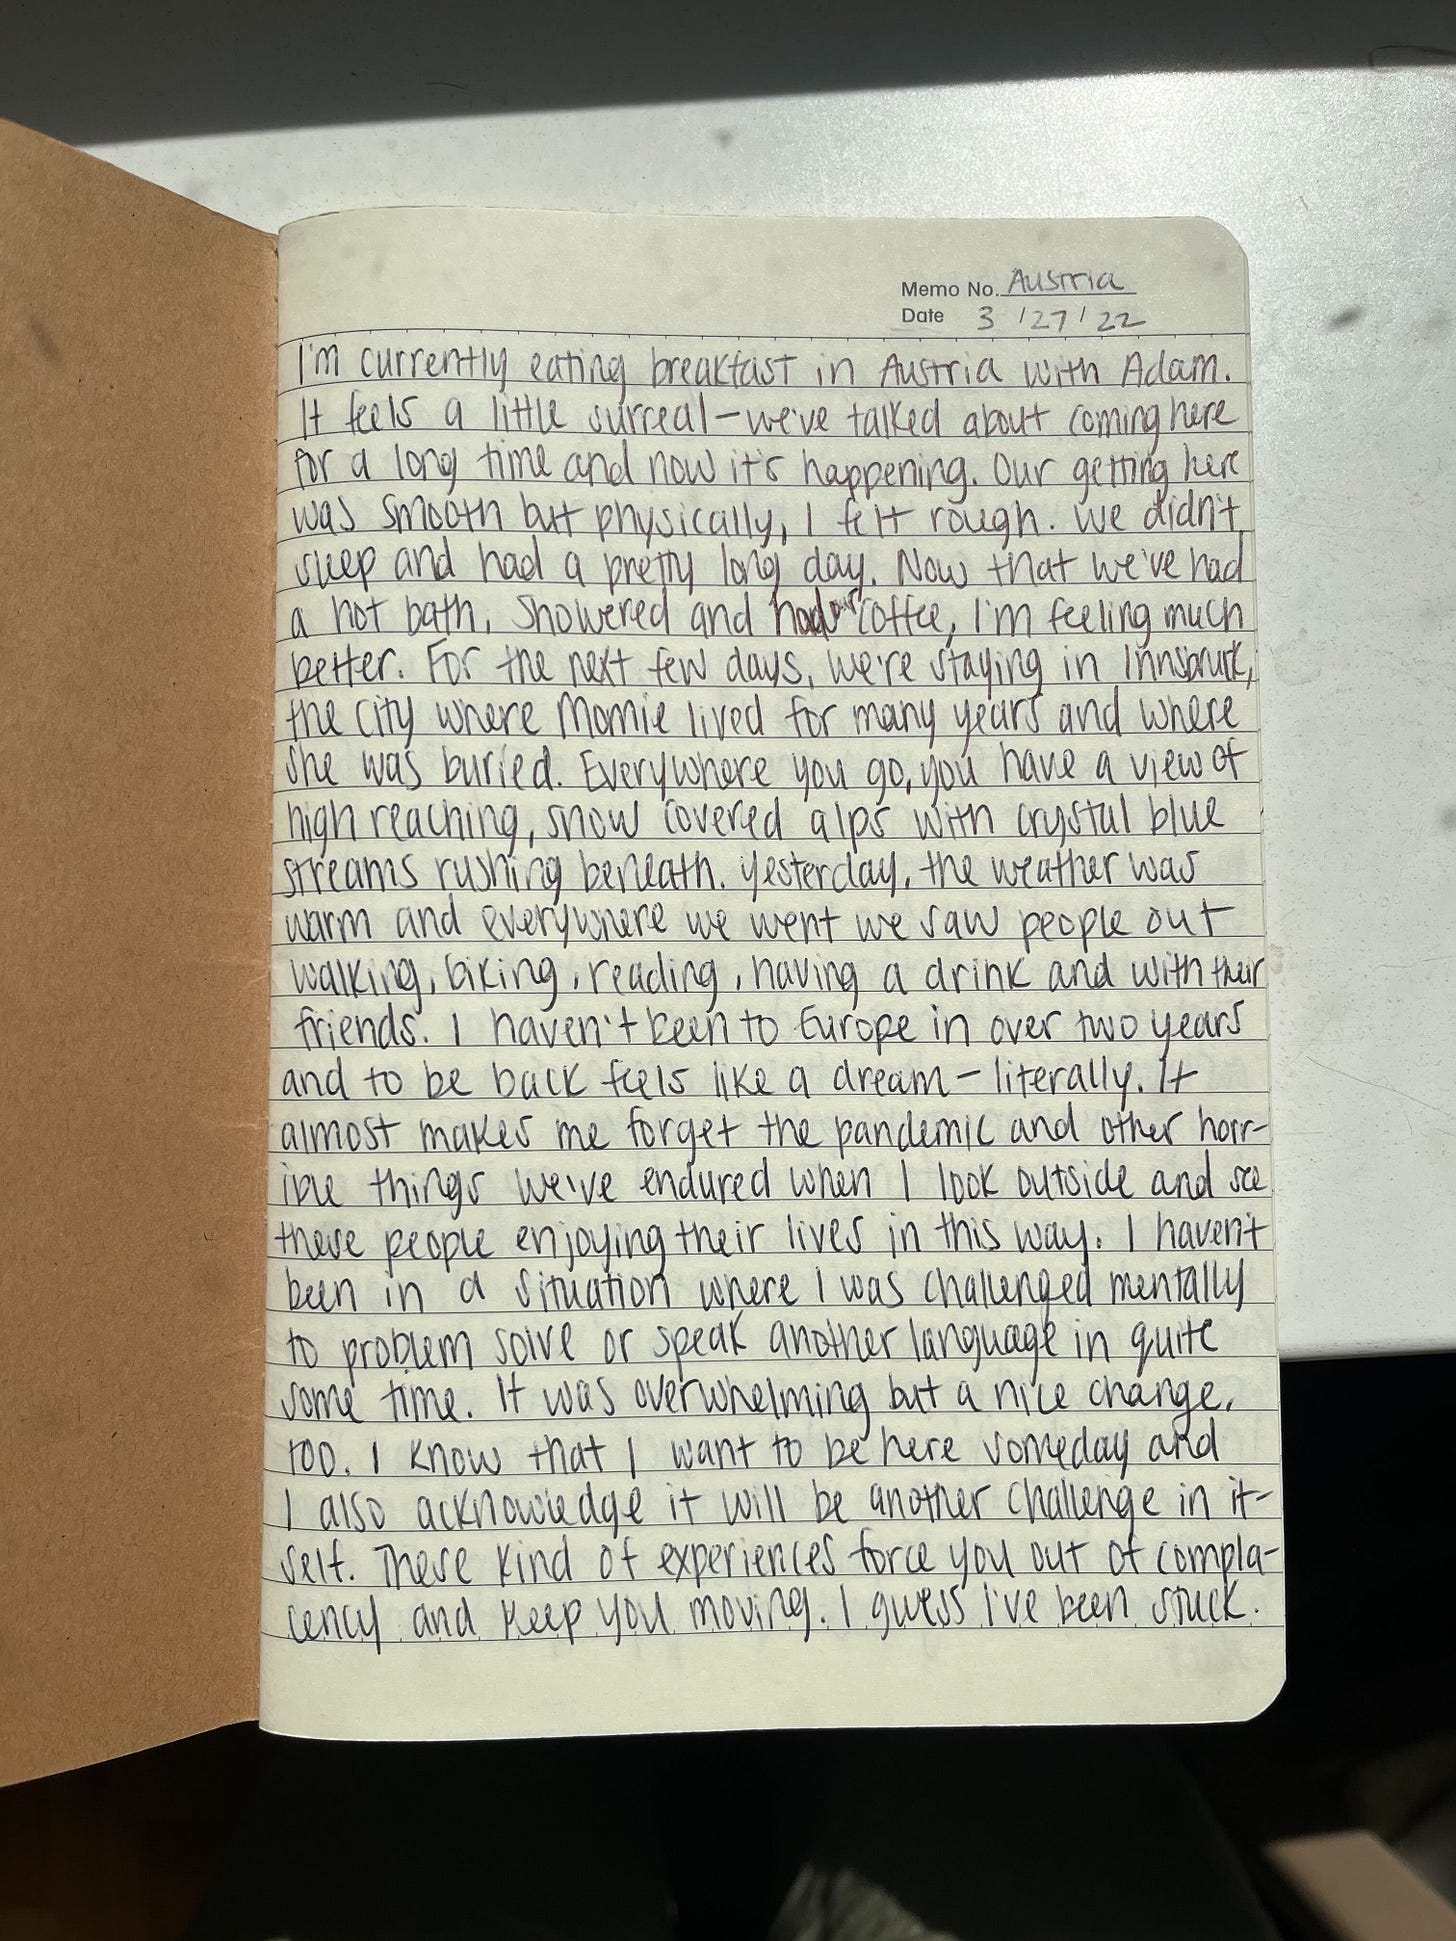 Memo No. Austria
Date 3 / 27 / 22
I'm currently eating breakfast in Austria with Adam.
It feels a little surreal – we've talked about coming here
for a long time and now it's happening. Our getting here
was smooth but physically, I felt rough. We didn't
sleep and had a pretty long day. Now that we've had
a hot bath, showered and had our coffee, I'm feeling much
better. For the next few days, we're staying in Innsbruck,
the city where Momie lived for many years and where
she was buried. Everywhere you go, you have a view of
high reaching, snow covered alps with crystal blue
streams rushing beneath. Yesterday, the weather was
warm and everywhere we went we saw people out
walking, biking, reading, having a drink and with their
friends. I haven't been to Europe in over two years
and to be back feels like a dream – literally. It
almost makes me forget the pandemic and other horr-
ible things we've endured when I look outside and see
these people enjoying their lives in this way. I haven't
been in a situation where I was challenged mentally
to problem solve or speak another language in quite
some time. It was overwhelming but a nice change,
too. I know that I want to be here someday and
I also acknowledge it will be another challenge in it-
self. These kind of experiences force you out of compla-
cency and keep you moving. I guess I've been stuck.